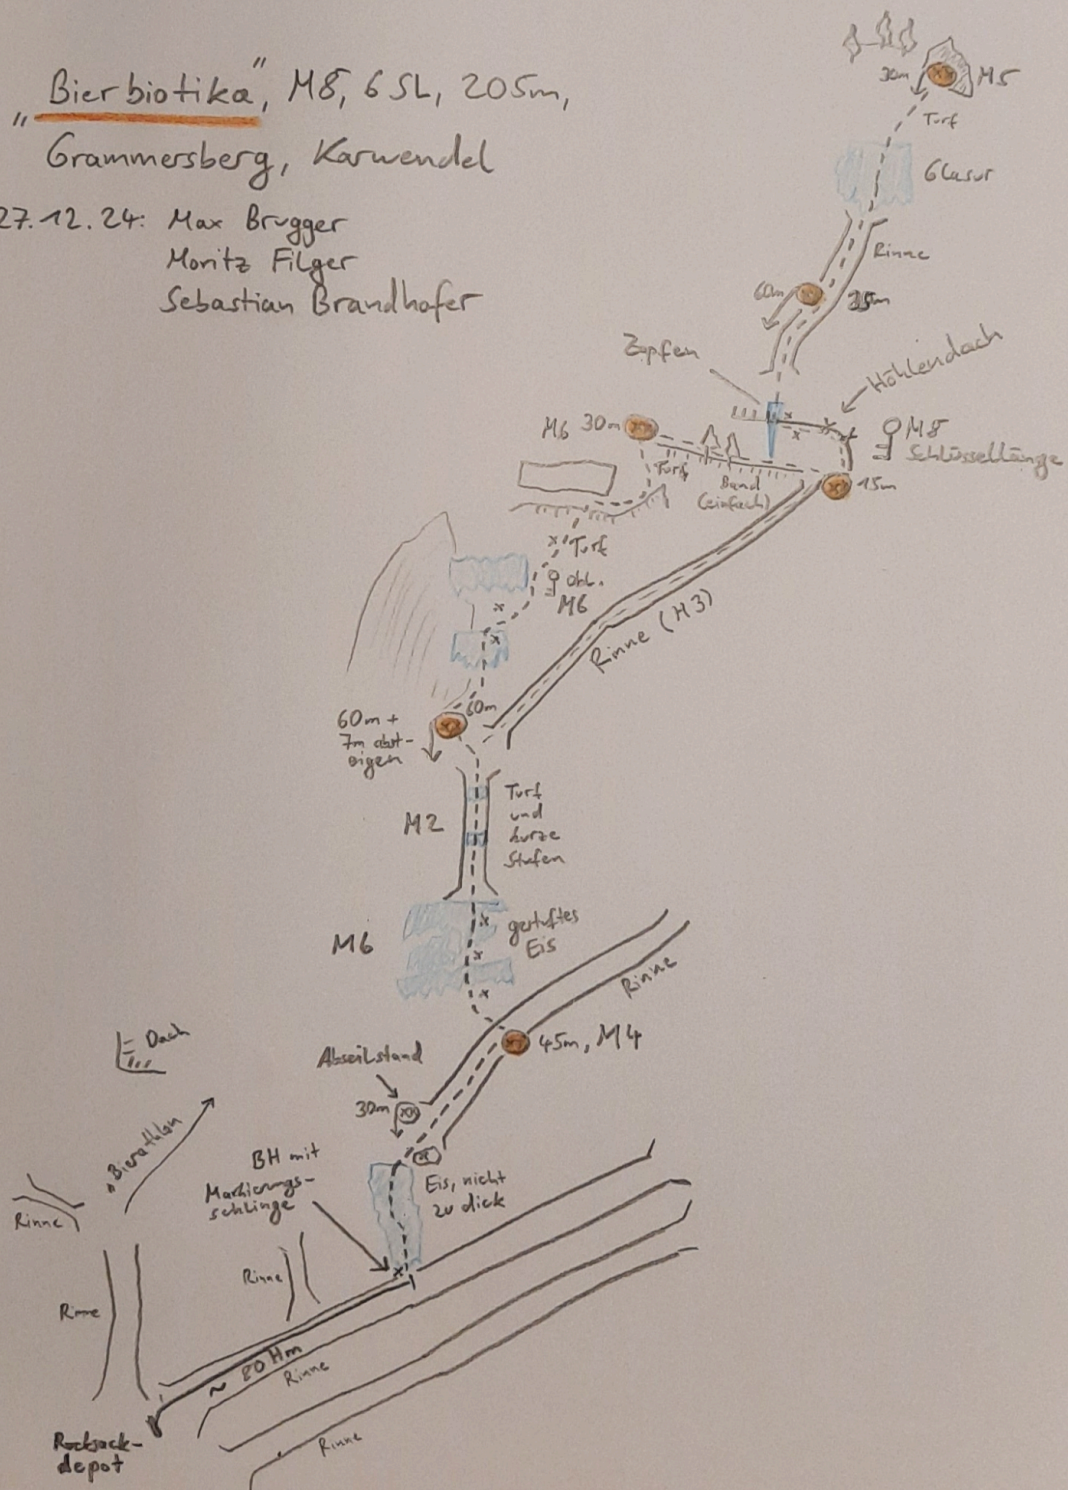 „Bierbiotika“, M8, 6 SL, 205m,
Grammersberg, Karwendel
27.12.24: Max Brugger
Moritz Filger
Sebastian Brandhofer
30m
M5
Turf
Glasur
Rinne
60m
35m
Zapfen
Höhlendach
M8
Schlüssellänge
M6 30m
Turf
Band
(einfach)
15m
Turf
obl.
M6
Rinne (M3)
60m
60m +
7m abst-
eigen
M2
Turf
und
kurze
Stufen
M6
gestuftes
Eis
Rinne
45m, M4
Abseilstand
30m
Dach
"Bierathlon
BH mit
Markierungs-
schlinge
Eis, nicht
zu dick
Rinne
Rinne
Rinne
~ 80 Hm
Rinne
Rucksack-
depot
Rinne